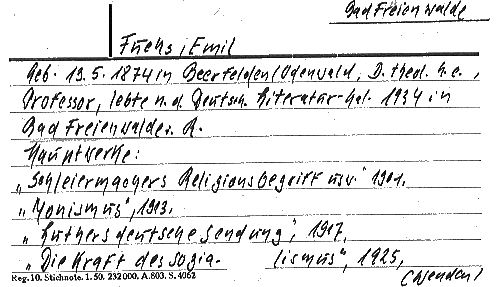 Bad Freienwalde
Fuchs, Emil
Geb. 13.5.1874 in Beerfelden/Odenwald, D. theol. h.c.,
Professor, lebte n.d. Deutsch. Literatur-Kal. 1934 in
Bad Freienwalde a.
Hauptwerke:
"Schleiermachers Religionsbegriff usw." 1901.
"Monismus", 1913.
"Luthers deutsche Sendung", 1917,
"Die Kraft des Sozialismus", 1925,
Reg. 10. Stichnote. 1. 50. 232000. A. 803. S. 4062